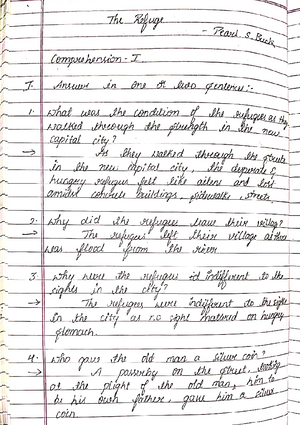 The Refuge
- Pearl S. Buck
Comprehension - I
I. Answer in one or two sentence :-
1. What was the condition of the refugees as they
walked through the strength in the new
capital city?
→ As they walked through the streets
in the new capital city, the desperate &
hungry refugee felt like aliens and lost
amidst concrete buildings, sidewalks, streets
2. Why did the refugee leave their village?
→ The refugee left their village as there
was flood from the river
3. Why were the refugee id indifferent to the
sights in the city?
→ The refugees were indifferent to the sights
in the city as no sight mattered on hungry
stomach.
4. Who gave the old man a silver coin?
→ A passerby on the street, looking
at the plight of the old man, him to
be his own father, gave him a silver
coin.